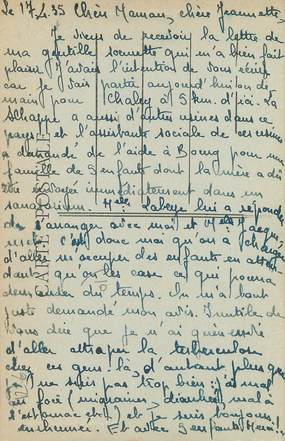 Le 17.2.35 Chère Maman, chère Jeannette,
Je viens de recevoir la lettre de
ma gentille soeurette qui m'a bien fait
plaisir J'avais l'intention de vous écrire
car je vais partir aujourd'hui ou de
main pour Chaley à 5 km. d'ici. La
Schappe a aussi d'autres usines dans ce
pays et l'assistante sociale de ces usines
a demandé de l'aide à Bourg pour une
famille de 5 enfants dont la mère a dû
être envoyée immédiatement dans un
sanatorium. Melle Labeye lui a répondu
de s'arranger avec moi et Melle
c'est donc moi qu'on a
d'aller m'occuper des enfants en atten
dant qu'on les case ce qui pourra
demander du temps. On m'a tout
juste demandé mon avis. Inutile de
vous dire que je n'ai guère envie
d'aller attraper la tuberculose
chez ces gens là, d'autant plus que
je ne suis pas trop bien: j'ai mal
au foie (migraines, diarrhée, mal à
l'estomac etc.) et je suis toujours
enrhumée. Et avec 5 enfants Merci!
CARTE POSTALE